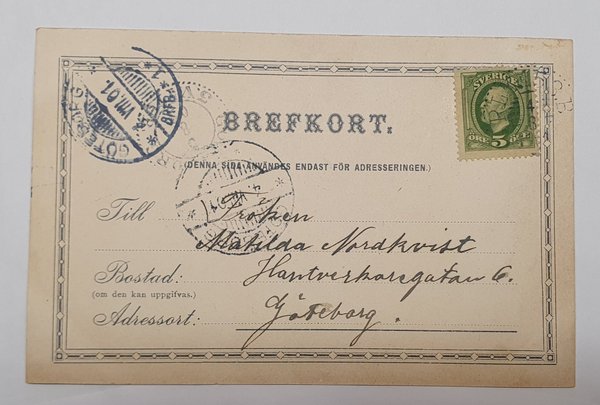 SVERIGE
ÖRE 5 ÖRE
GÖTEBORG
VII.01
1 BREFB. 1
BREFKORT.
(DENNA SIDA ANVÄNDES ENDAST FÖR ADRESSERINGEN.)
Till Fröken
Matilda Nordkvist
Bostad: Hantverkaregatan 6.
(om den kan uppgifvas.)
Adressort: Göteborg.